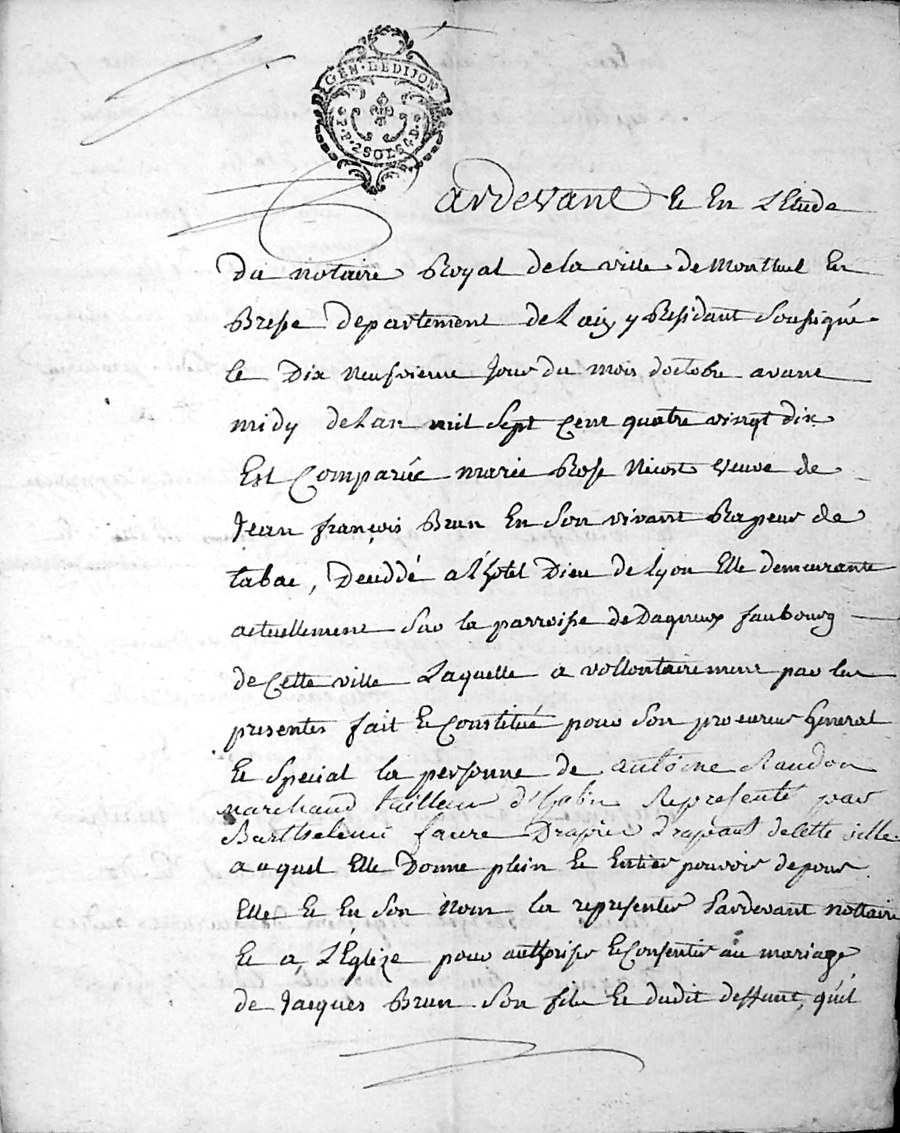 GEN. DE DIJON
P.P. 2 SOLS 4 D.
Pardevant et En L'Etude
Du notaire Royal de la ville de Montluel En
Bresse departement de Lain y Residant soussigné
le Dix Neufvieme Jour du mois doctobre avant
midy de Lan mil sept cent quatre vingt dix
Est Comparüe marie Rose Nicost veuve de
Jean françois Brun En son vivant Rapeur de
tabac, Deceddé a l'hotel Dieu de Lyon Elle demeurante
actuellement sur la parroisse de Dagneux faubourg
de Cette ville Laquelle a vollontairement par les
presentes fait et Constitué pour son procureur General
et special la personne de antoine
marchand tailleur d'habis Representé par
Barthelemi faure Draprier drapant de cette ville
auquel Elle Donne plein et Entier pouvoir de pour
Elle et En son Nom la representer Pardevant nottaire
et a L'Eglize pour authoriser et Consentir au mariage
de Jacques Brun son fils et dudit deffunt, qu'il